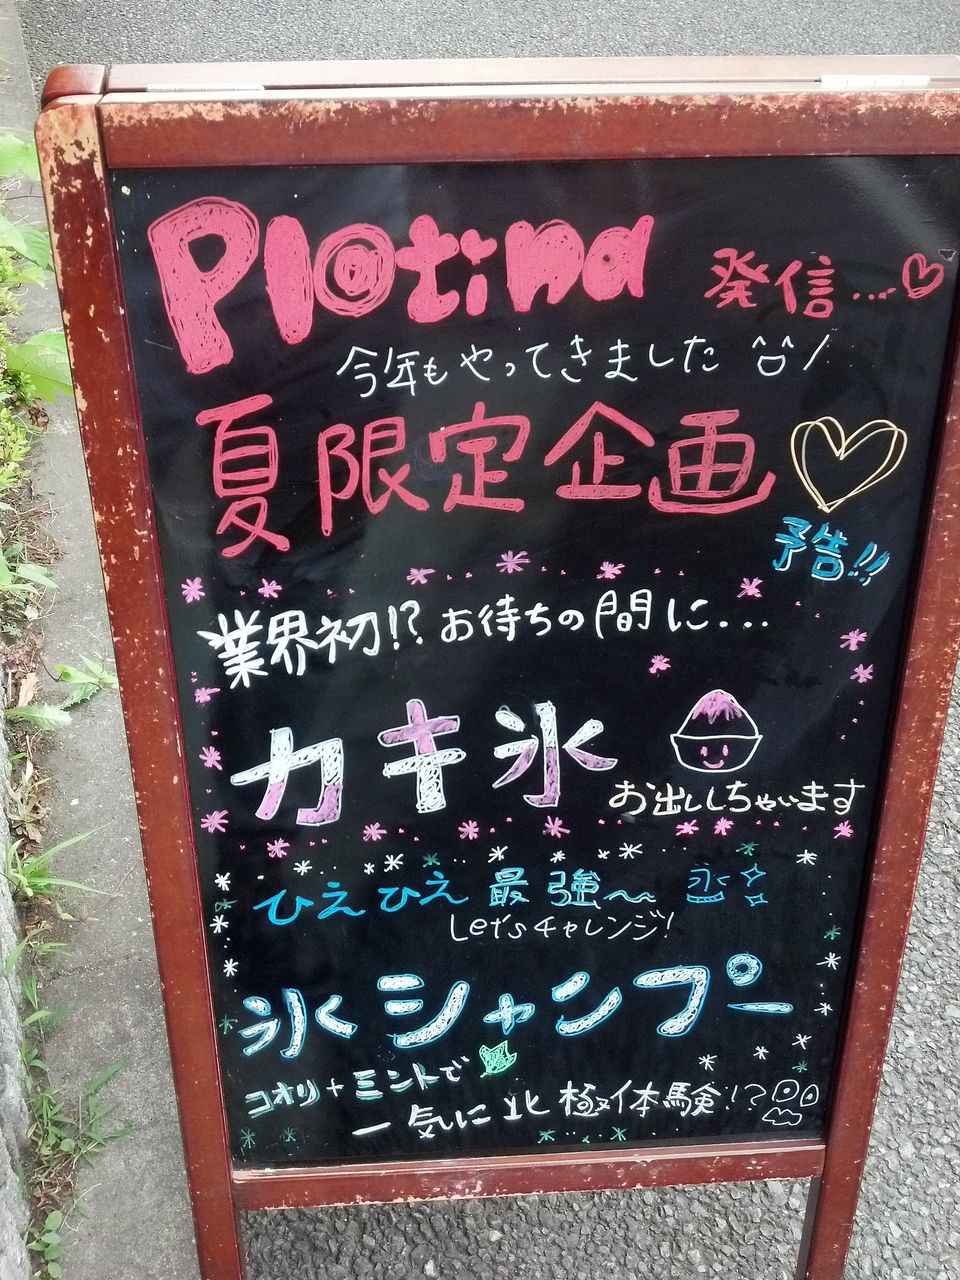 Platina 発信...♡
今年もやってきました^^/
夏限定企画♡
予告!!
業界初!?お待ちの間に...
カキ氷
お出ししちゃいます
ひえひえ最強〜 氷
Let'sチャレンジ!
氷シャンプー
コオリ+ミントで
一気に北極体験!?